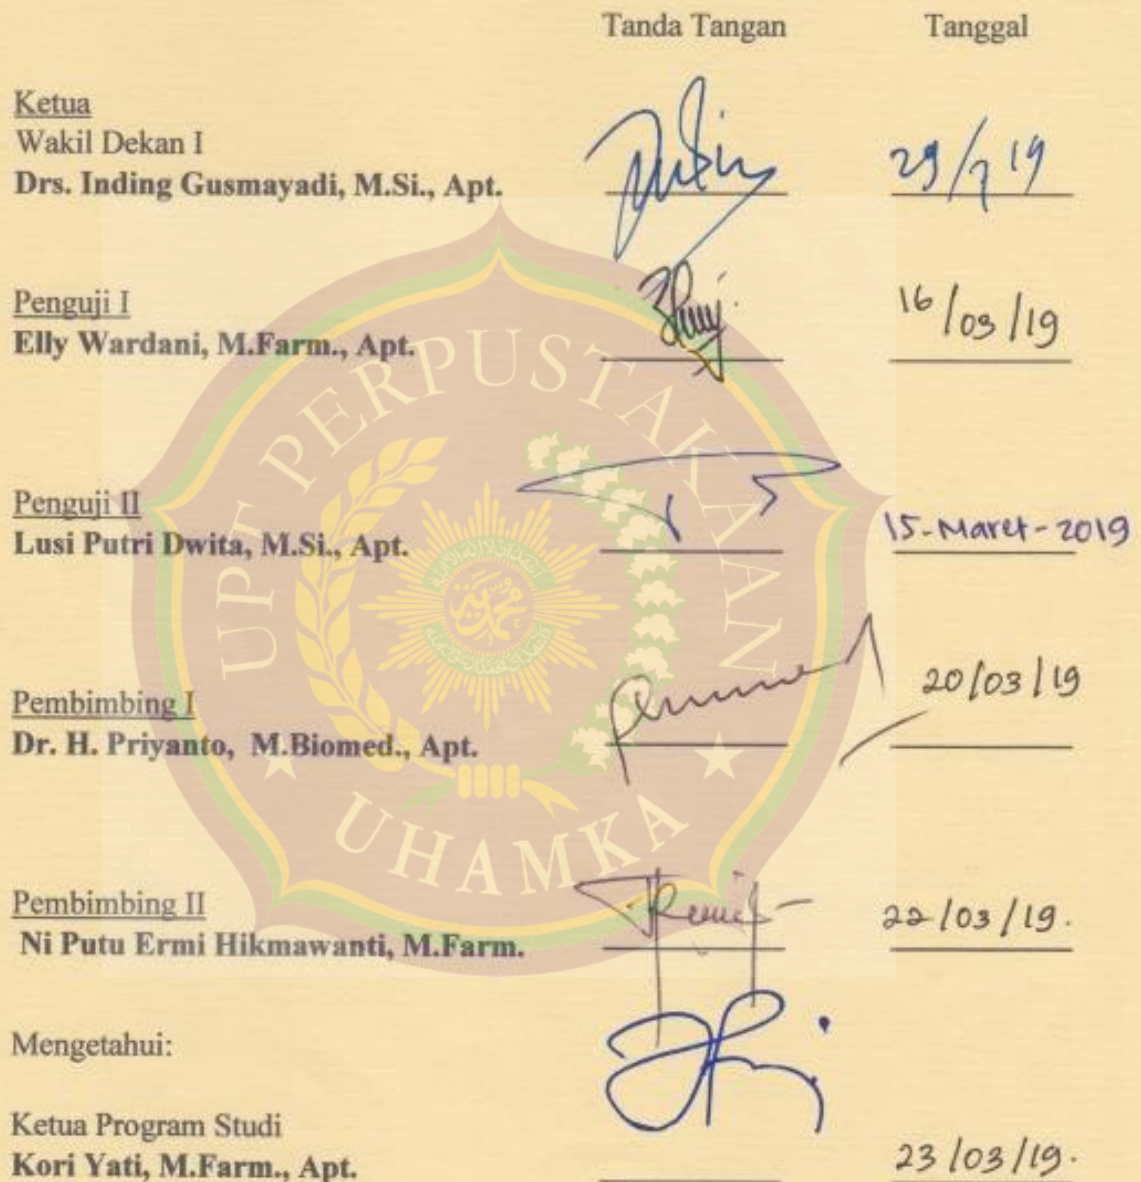 Tanda Tangan Tanggal
Ketua
Wakil Dekan I
Drs. Inding Gusmayadi, M.Si., Apt. 29/7 19
Penguji I
Elly Wardani, M.Farm., Apt. 16/03/19
Penguji II
Lusi Putri Dwita, M.Si., Apt. 15-Maret-2019
Pembimbing I
Dr. H. Priyanto, M.Biomed., Apt. 20/03/19
Pembimbing II
Ni Putu Ermi Hikmawanti, M.Farm. 22/03/19.
Mengetahui:
Ketua Program Studi
Kori Yati, M.Farm., Apt. 23/03/19.
UPT PERPUSTAKAAN
UHAMKA